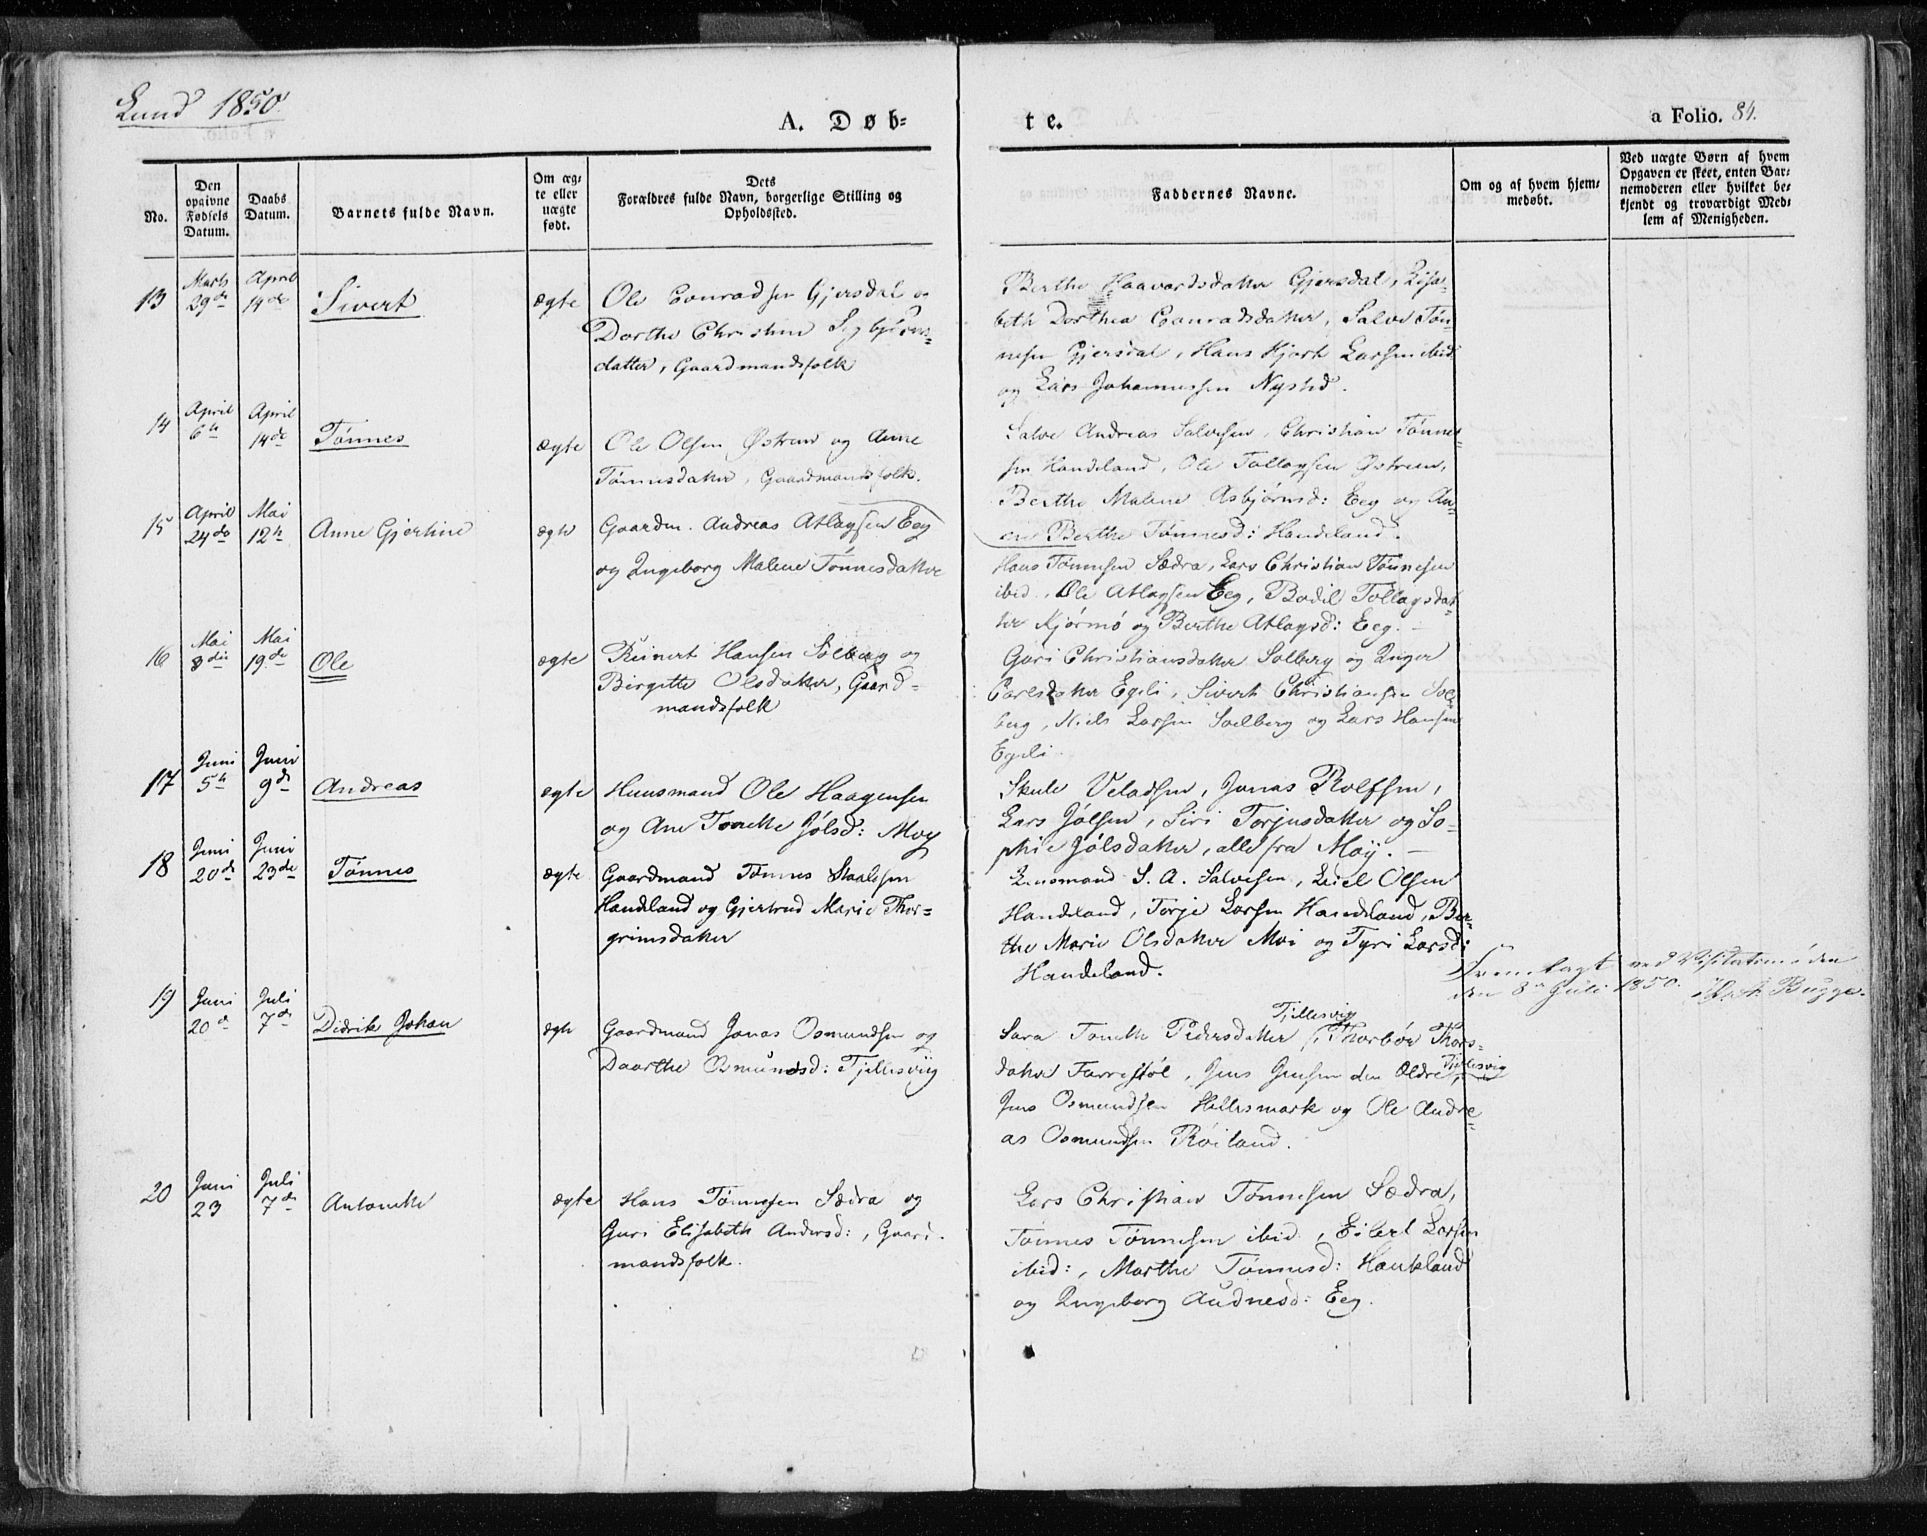 Lund 1850.
A. Døb-
te.
a Folio. 84.
No.
Den
opgivne
Fødsels
Datum.
Daabs
Datum.
Barnets fulde Navn.
Om æg-
te eller
uægte
født.
Dets
Forældres fulde Navn, borgerlige Stilling og
Opholdssted.
Faddernes Navne.
Om og af hvem hjem-
medøbt.
Ved uægte Børn af hvem
Opgaven er skeet, enten Bar-
nemoderen eller hvilket be-
kjendt og troværdigt Med-
lem af Menigheden.
13 Marts 29de April 14de Sivert ægte
Ole Conradsen Gjersdal og
Dorthe Christine Sigbjørns-
datter, Gaardmandsfolk
Berthe Haavardsdatter Gjersdal, Lisa-
beth Dorthea Conradsdatter, Salve Tøn-
nesen Gjersdal, Hans Hjort Larsen ibid
og Lars Johannessen Nysted.
14 April 6te April 14de Tönnes ægte
Ole Olsen Østrem og Anne
Tönnesdatter, Gaardmandsfolk.
Salve Andreas Salvesen, Christian Tönnes-
sen Handeland, Ole Tollagsen Østrem,
Berthe Malene Asbjørnsd: Eeg og An-
ne Berthe Tönnesd: Handeland.
15 April 24de Mai 12te Anne Gjertine ægte
Gaardm. Andreas Atlagsen Eeg
og Ingeborg Malene Tönnesdatter
Hans Tönnesen Sædra, Lars Christian Tönnesen
ibid., Ole Atlagsen Eeg, Bodil Tollagsdat-
ter Kjörmö og Berthe Atlagsd: Eeg. —
16 Mai 8de Mai 19de Ole ægte
Reinert Hansen Solberg og
Birgitte Olsdatter, Gaard-
mandsfolk
Guri Christiansdatter Solberg og Inger
Carlsdatter Egeli, Sivert Christiansen Sol-
berg, Niels Larsen Soelberg og Lars Hansen
Egeli
17 Juni 5te Juni 9de Andreas ægte
Huusmand Ole Haagensen
og Ane Tonette Jölsd: Moy
Skule Veladsen, Jonas Rolfsen,
Lars Jölsen, Siri Torjusdatter og So-
phie Jölsdatter, alle fra Moÿ. —
18 Juni 20de Juni 23de Tönnes ægte
Gaardmand Tönnes Staalesen
Handeland og Gjertrud Marie Thor-
grimsdatter
Lensmand S. A. Salvesen, Eiel Olsen
Handeland, Torje Larsen Handeland, Ber-
the Marie Olsdatter Moi og Tyri Larsd:
Handeland.
Fremlagt ved Visitatsmöden
den 8de Juli 1850. Bugge.
19 Juni 20de Juli 7de Didrik Johan ægte
Gaardmand Jonas Osmundsen og
Daarthe Osmundsd: Tjellesvig
Tjellesvig
Sara Tonette Pedersdatter, Thorbör Thors-
datter Farrestöl, Jens Jensen den Ældre Tjellesvig,
Jens Osmundsen Hellesmark og Ole Andre-
as Osmundsen Röiland.
20 Juni 23 Juli 7de Antonette ægte
Hans Tönnesen Sædra og
Guri Elisabeth Andersd:, Gaard-
mandsfolk.
Lars Christian Tönnesen Sædra,
Tönnes Tönnesen ibid, Eilert Larsen
ibid:, Marthe Tönnesd: Haukland
og Ingeborg Audnesd: Eeg.